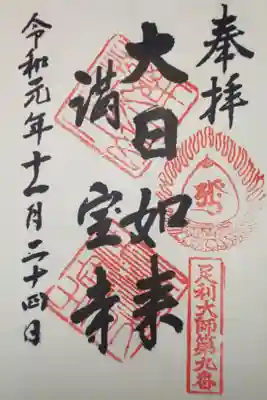 奉拝
足利大師第九番
大日如来
満宝寺
令和元年十一月二十四日